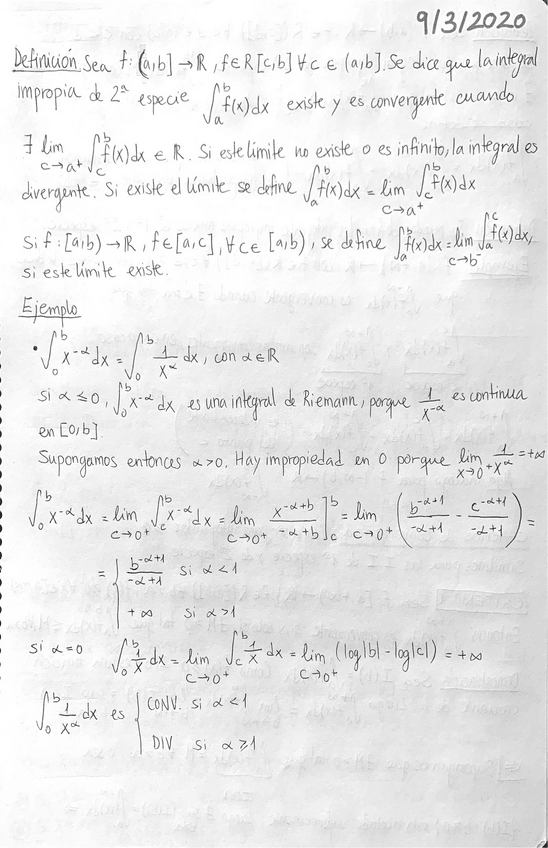 9/3/2020
Definición Sea f: (a,b] → ℝ, f ∈ R[c,b] ∀c ∈ (a,b]. Se dice que la integral
impropia de 2ª especie ∫_a^b f(x)dx existe y es convergente cuando
∃ lim_{c→a⁺} ∫_c^b f(x)dx ∈ ℝ. Si este límite no existe o es infinito, la integral es
divergente. Si existe el límite se define ∫_a^b f(x)dx = lim_{c→a⁺} ∫_c^b f(x)dx
Si f: [a,b) → ℝ, f ∈ [a,c], ∀c ∈ [a,b), se define ∫_a^b f(x)dx = lim_{c→b⁻} ∫_a^c f(x)dx,
si este límite existe.
Ejemplo
• ∫_0^b x^{-α} dx = ∫_0^b 1/x^α dx, con α ∈ ℝ
si α ≤ 0, ∫_0^b x^{-α} dx es una integral de Riemann, porque 1/x^{-α} es continua
en [0,b].
Supongamos entonces α > 0. Hay impropiedad en 0 porque lim_{x→0⁺} 1/x^α = +∞
∫_0^b x^{-α} dx = lim_{c→0⁺} ∫_c^b x^{-α} dx = lim_{c→0⁺} x^{-α+b}/(-α+b) ]_c^b = lim_{c→0⁺} ( b^{-α+1}/(-α+1) - c^{-α+1}/(-α+1) ) =
= { b^{-α+1}/(-α+1) si α < 1
+∞ si α > 1
si α = 0 ∫_0^b 1/x dx = lim_{c→0⁺} ∫_c^b 1/x dx = lim_{c→0⁺} (log|b| - log|c|) = +∞
∫_0^b 1/x^α dx es { CONV. si α < 1
DIV si α ≥ 1